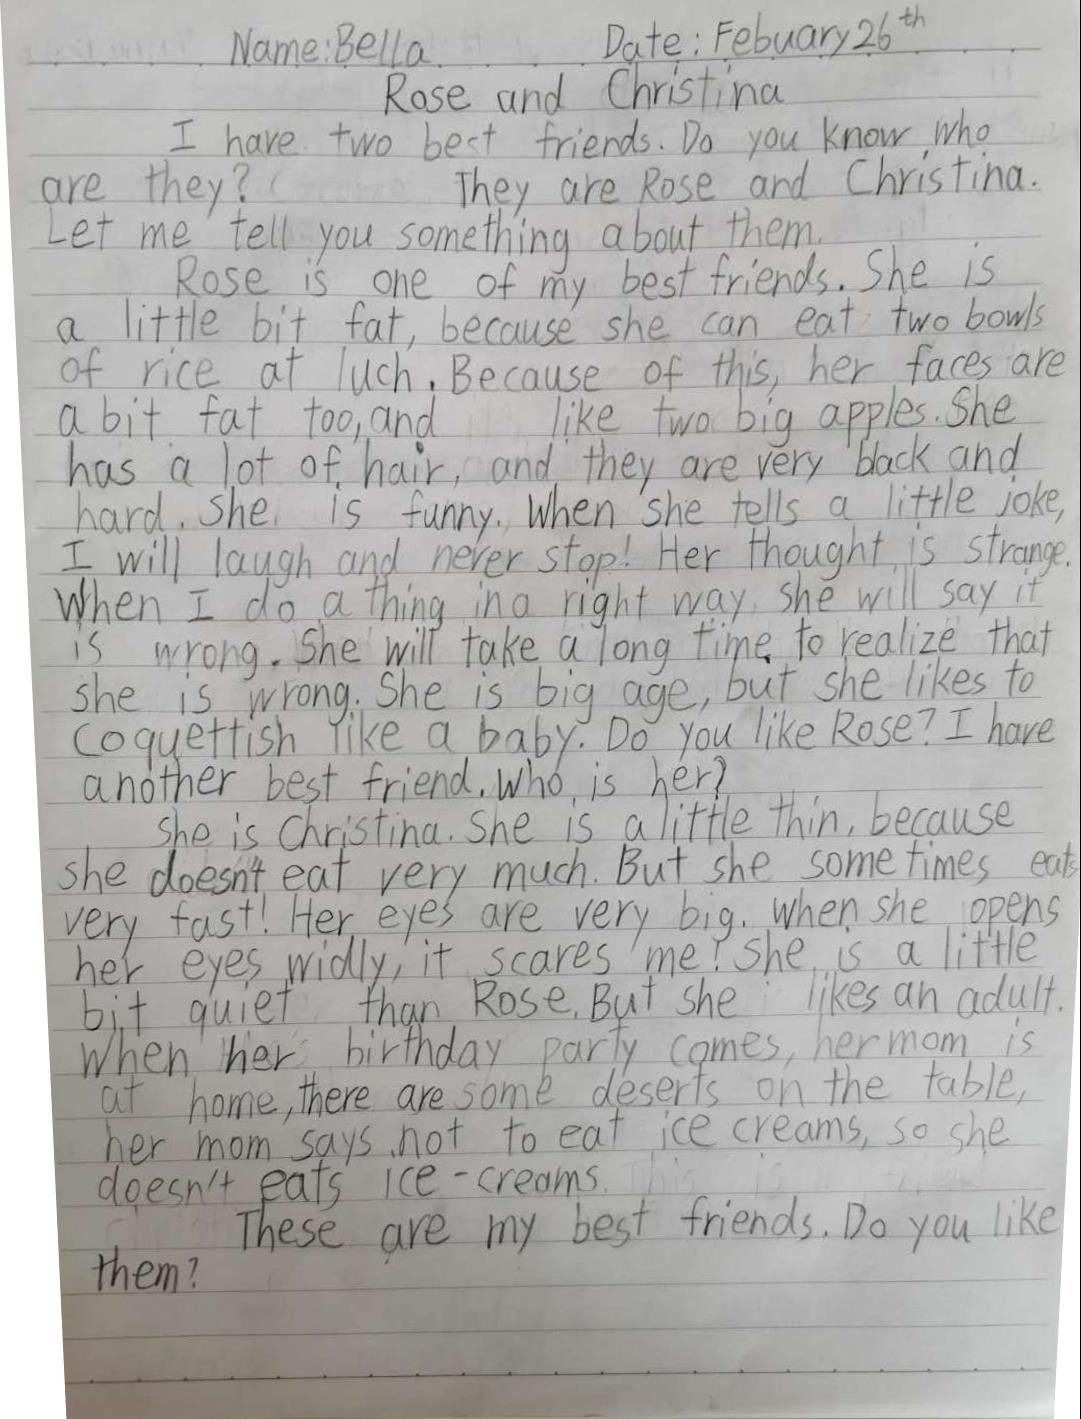 Name: Bella Date: Febuary 26th
Rose and Christina
I have two best friends. Do you know who
are they? They are Rose and Christina.
Let me tell you something about them.
Rose is one of my best friends. She is
a little bit fat, because she can eat two bowls
of rice at luch. Because of this, her faces are
a bit fat too, and like two big apples. She
has a lot of hair, and they are very black and
hard. She is funny. When she tells a little joke,
I will laugh and never stop! Her thought is strange.
When I do a thing in a right way, she will say it
is wrong. She will take a long time to realize that
she is wrong. She is big age, but she likes to
coquettish like a baby. Do you like Rose? I have
another best friend. Who is her?
She is Christina. She is a little thin, because
she doesn't eat very much. But she sometimes eats
very fast! Her eyes are very big. When she opens
her eyes widly, it scares me! She is a little
bit quiet than Rose. But she likes an adult.
When her birthday party comes, her mom is
at home, there are some deserts on the table,
her mom says not to eat ice creams, so she
doesn't eats ice-creams.
These are my best friends. Do you like
them?